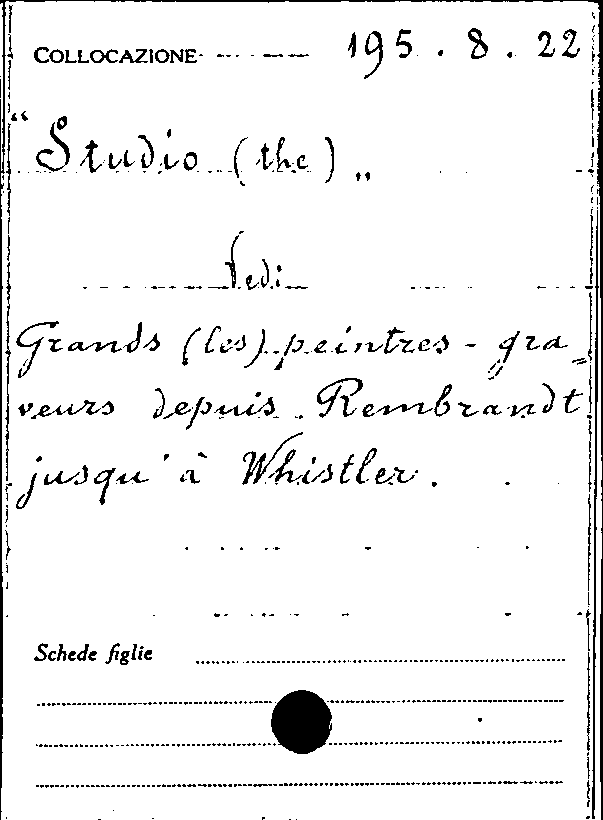 COLLOCAZIONE 195.8.22
"Studio (the)„
Vedi
Grands (les) peintres-gra=
veurs depuis Rembrandt
jusqu'à Whistler.
Schede figlie